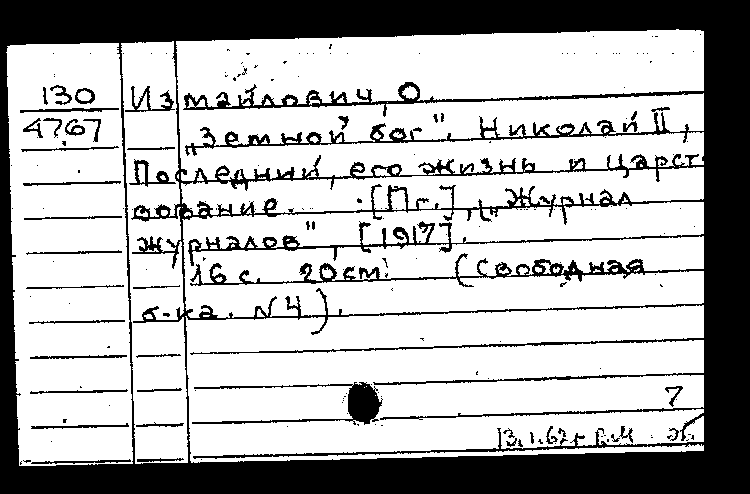 130 Измайлович, О.
4767 „Земной бог". Николай II,
Последний, его жизнь и царст-
вование. [Пг.], „Журнал
журналов", [1917].
16 с. 20 см. (Свободная
б-ка. N 4).
7
13.1.62 г.